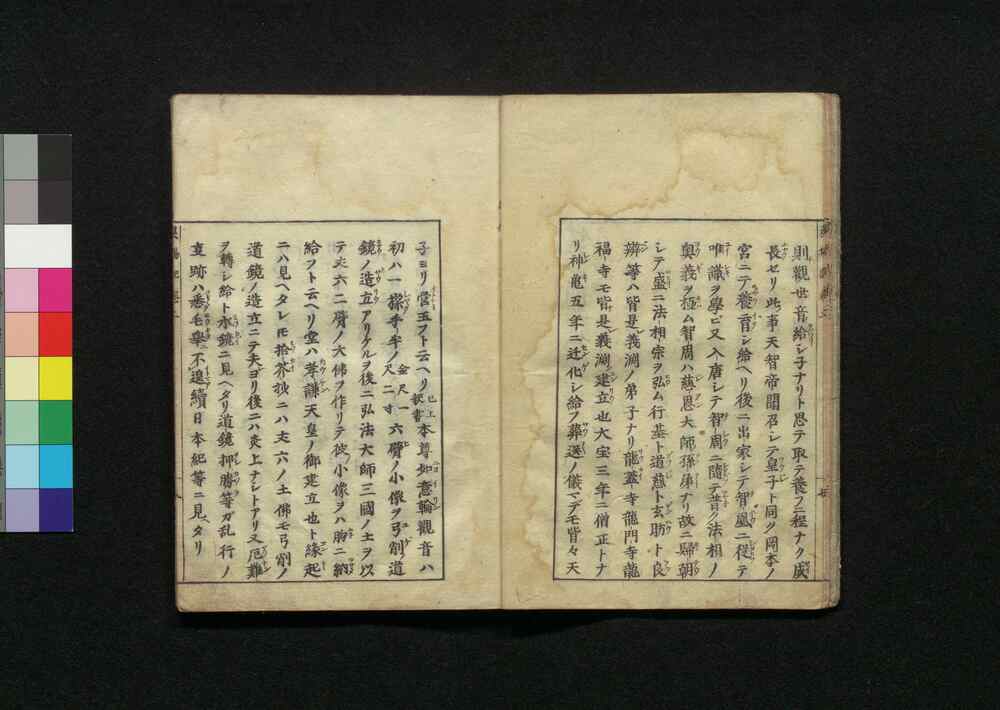 則觀世音給シ子ナリト思テ取テ養フニ程ナク成
長セリ此事天智帝聞召シテ皇子ト同ク岡本ノ
宮ニテ養育シ給ヘリ後ニ出家シテ智鳳ニ従テ
唯識ヲ學ビ又入唐シテ智周ニ随テ普ク法相ノ
奥義ヲ極ム智周ハ慈恩大師孫弟ナリ故ニ歸朝
シテ盛ニ法相宗ヲ弘ム行基ト道慈ト玄昉ト良
辨等ハ皆是義渕ノ弟子ナリ龍蓋寺龍門寺龍
福寺モ皆是義渕ノ建立也大宝三年ニ僧正トナ
リ神亀五年ニ迁化シ給フ葬送ノ儀マデモ皆々天
子ヨリ営玉フト云ヘリ已上釈書本尊如意輪觀音ハ
初ハ一𢷡手半ノ金尺一尺二寸六臂ノ小像ヲ弓削道
鏡ノ造立アリケルヲ後ニ弘法大師三國ノ土ヲ以
テ丈六二臂ノ大佛ヲ作リテ彼小像ヲハ胸ニ納
給フト云ヘリ堂ハ孝謙天皇ノ御建立也ト縁起
ニハ見ヘタレ𪜈拾芥抄ニハ丈六ノ土佛モ弓削ノ
道鏡ノ造立ニテ夫ヨリ後ニハ炎上ナシトアリ又厄難
ヲ轉シ給ト水鏡ニ見ヘタリ道鏡押勝等ガ乱行ノ
亊跡ハ悉毛擧ニ不遑續日本紀等ニ見ヘタリ